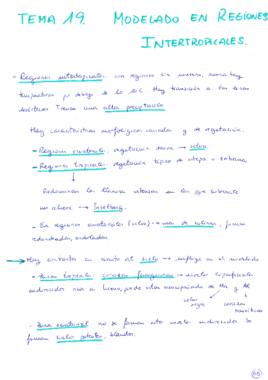 TEMA 19. MODELADO EN REGIONES
INTERTROPICALES.
- Regiones intertropicales son regiones sin invierno, nunca hay
temperaturas por debajo de los 0C. Hay transición a las zonas
desérticas. Tienen una alta precipitación
Hay características morfológicas variadas y de vegetación.
- Regiones ecuatoriales: vegetación → selva
- Regiones tropicales: vegetación típica de estepa o sabana
Predominan las llanuras extensas en las que
relieve → Inselberg.
- En regiones ecuatoriales (selva) → de colinas, formas
redondeadas, onduladas.
→ Hay contraste en cuanto al suelo → influye en el modelado
- Zona tropical: corazas ferruginosas → suelos superficiales
endurecidos ricos en hierro, puede estar acompañado de Mn y Al
color negro
corazas bauxíticas
- Zona ecuatorial no se forman esto suelos endurecidos se
forman suelos blandos.